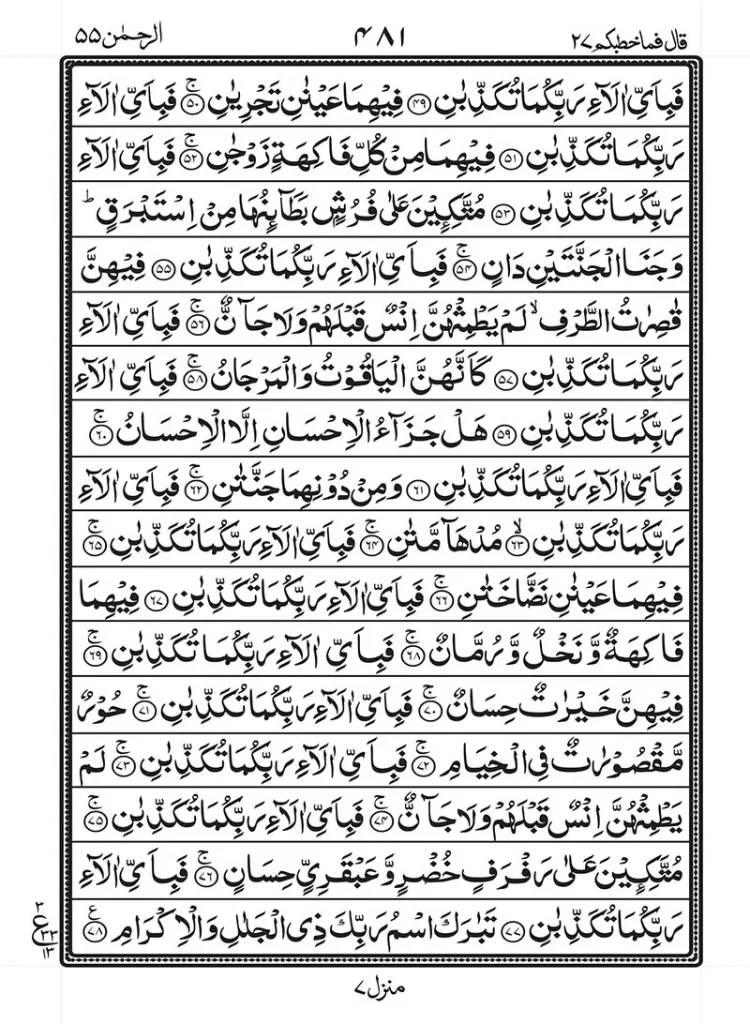 الرحمٰن ۵۵ ۴۸۱ قال فما خطبكم ۲۷
فَبِاَیِّ اٰلَآءِ رَبِّكُمَا تُكَذِّبٰنِ ۴۹ فِیْهِمَا عَیْنٰنِ تَجْرِیٰنِ ۚ ۵۰ فَبِاَیِّ اٰلَآءِ
رَبِّكُمَا تُكَذِّبٰنِ ۵۱ فِیْهِمَا مِنْ كُلِّ فَاكِهَةٍ زَوْجٰنِ ۚ ۵۲ فَبِاَیِّ اٰلَآءِ
رَبِّكُمَا تُكَذِّبٰنِ ۵۳ مُتَّكِـِٕیْنَ عَلٰی فُرُشٍۭ بَطَآىِٕنُهَا مِنْ اِسْتَبْرَقٍ ؕ
وَ جَنَا الْجَنَّتَیْنِ دَانٍ ۚ ۵۴ فَبِاَیِّ اٰلَآءِ رَبِّكُمَا تُكَذِّبٰنِ ۵۵ فِیْهِنَّ
قٰصِرٰتُ الطَّرْفِ ۙ لَمْ یَطْمِثْهُنَّ اِنْسٌ قَبْلَهُمْ وَ لَا جَآنٌّ ۚ ۵۶ فَبِاَیِّ اٰلَآءِ
رَبِّكُمَا تُكَذِّبٰنِ ۵۷ كَاَنَّهُنَّ الْیَاقُوْتُ وَ الْمَرْجَانُ ۚ ۵۸ فَبِاَیِّ اٰلَآءِ
رَبِّكُمَا تُكَذِّبٰنِ ۵۹ هَلْ جَزَآءُ الْاِحْسَانِ اِلَّا الْاِحْسَانُ ۚ ۶۰
فَبِاَیِّ اٰلَآءِ رَبِّكُمَا تُكَذِّبٰنِ ۶۱ وَ مِنْ دُوْنِهِمَا جَنَّتٰنِ ۚ ۶۲ فَبِاَیِّ اٰلَآءِ
رَبِّكُمَا تُكَذِّبٰنِ ۙ ۶۳ مُدْهَآمَّتٰنِ ۚ ۶۴ فَبِاَیِّ اٰلَآءِ رَبِّكُمَا تُكَذِّبٰنِ ۚ ۶۵
فِیْهِمَا عَیْنٰنِ نَضَّاخَتٰنِ ۚ ۶۶ فَبِاَیِّ اٰلَآءِ رَبِّكُمَا تُكَذِّبٰنِ ۶۷ فِیْهِمَا
فَاكِهَةٌ وَّ نَخْلٌ وَّ رُمَّانٌ ۚ ۶۸ فَبِاَیِّ اٰلَآءِ رَبِّكُمَا تُكَذِّبٰنِ ۚ ۶۹
فِیْهِنَّ خَیْرٰتٌ حِسَانٌ ۚ ۷۰ فَبِاَیِّ اٰلَآءِ رَبِّكُمَا تُكَذِّبٰنِ ۚ ۷۱ حُوْرٌ
مَّقْصُوْرٰتٌ فِی الْخِیَامِ ۚ ۷۲ فَبِاَیِّ اٰلَآءِ رَبِّكُمَا تُكَذِّبٰنِ ۚ ۷۳ لَمْ
یَطْمِثْهُنَّ اِنْسٌ قَبْلَهُمْ وَ لَا جَآنٌّ ۚ ۷۴ فَبِاَیِّ اٰلَآءِ رَبِّكُمَا تُكَذِّبٰنِ ۚ ۷۵
مُتَّكِـِٕیْنَ عَلٰی رَفْرَفٍ خُضْرٍ وَّ عَبْقَرِیٍّ حِسَانٍ ۚ ۷۶ فَبِاَیِّ اٰلَآءِ
رَبِّكُمَا تُكَذِّبٰنِ ۷۷ تَبٰرَكَ اسْمُ رَبِّكَ ذِی الْجَلٰلِ وَ الْاِكْرَامِ ۧ ۷۸
۳
ع ۳۳
۱۳
منزل ۷